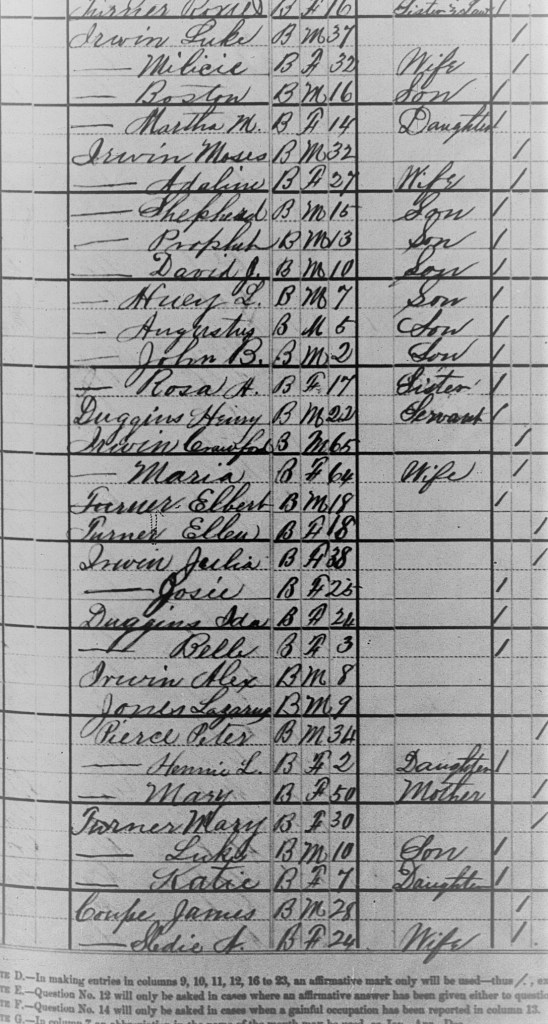 Turner B F 16 Sister's
Irwin Luke B M 37 1
— Milicie B F 32 Wife 1
— Boston B M 16 Son 1
— Martha M. B F 14 Daughter 1
Irwin Moses B M 32 1
— Adaline B F 27 Wife 1
— Shepherd B M 15 Son 1
— Prophet B M 13 Son 1
— David J. B M 10 Son 1
— Huey L. B M 7 Son 1
— Augustus B M 5 Son 1
— John B. B M 2 Son 1
— Rosa A. B F 17 Sister 1
Duggins Henry B M 22 Servant 1
Irwin Crawford B M 65 1
— Maria B F 64 Wife 1
Turner Elbert B M 18 1
Turner Ellen B F 18 1
Irwin Julia B F 38 1
— Josie B F 25 1
Duggins Ida B F 24 1
— Belle B F 3 1
Irwin Alex B M 8
Jones B M 9
Pierce Peter B M 34 1
— L. B F 2 Daughter 1
— Mary B F 50 Mother 1
Turner Mary B F 30 1
— Luke B M 10 Son 1
— Katie B F 7 Daughter 1
Coupe James B M 28 1
— A. B F 24 Wife 1
TE D.—In making entries in columns 9, 10, 11, 12, 16 to 23, an affirmative mark only will be used—thus /, ex
TE E.—Question No. 12 will only be asked in cases where an affirmative answer has been given either to questio
TE F.—Question No. 14 will only be asked in cases when a gainful occupation has been reported in column 13.
TE G.—In column 7 an abbreviation in the name of the month may be used, as Jan., Apr., Dec.